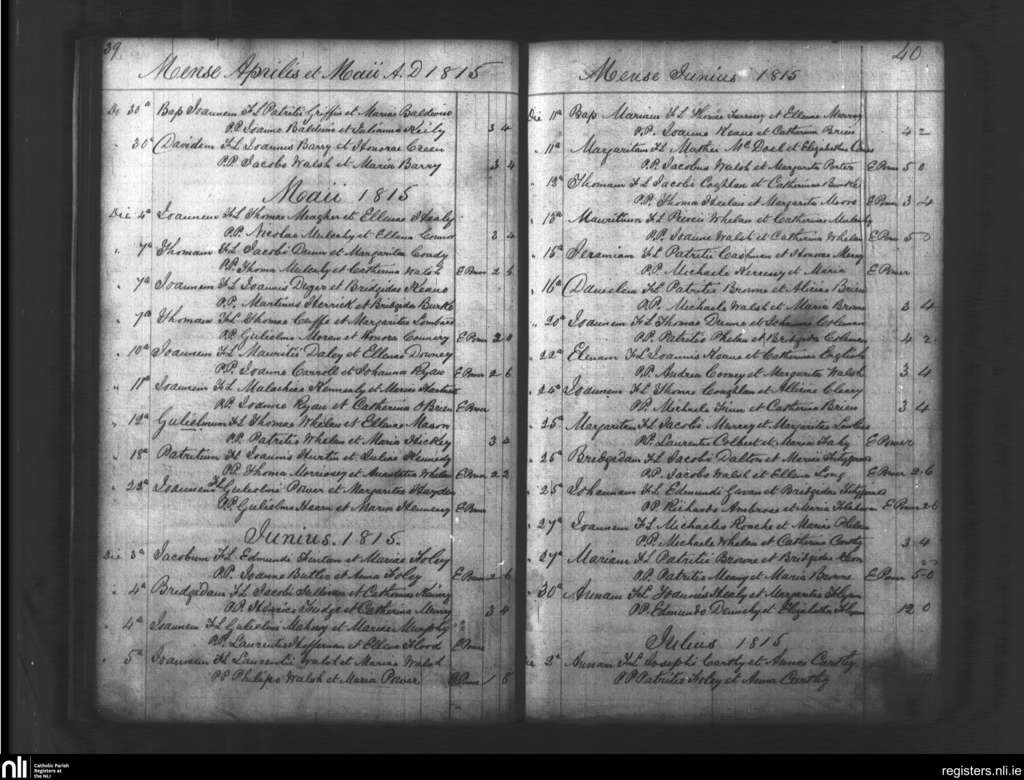 39
Mense Aprilis et Maii A.D 1815
Die 30ª Bap Joannem F.L Patritii Griffin et Mariæ Baldwin
P.P. Joanne Baldwin et Julianna Reily 3 4
30ª Davidem F.L Joannis Barry et Honoræ Green
P.P. Jacobo Walsh et Maria Barry 3 4
Maii 1815
Die 4ª Joannem F.L Thomæ Meagher et Ellenæ Healy
P.P. Nicolao Mulcahy et Ellena Connor 3 4
7ª Thomam F.L Jacobi Dunn et Margaritæ Condy
P.P. Thoma Mulcahy et Catherina Walsh E Power 2 6
7ª Joannem F.L Joannis Duger et Bridgidæ Keane
P.P. Martinus Sherrick et Bridgida Burke
7ª Thomam F.L Thomæ Caffe et Margaritæ Lombard
P.P. Gulielmo Moran et Honora Connery E Power 2 0
10ª Joannem F.L Mauritii Daley et Ellenæ Downey
P.P. Joanne Carroll et Johanna Ryan E Power 2 6
11ª Joannem F.L Malachiæ Kennealy et Mariæ
P.P. Joanne Ryan et Catherina O Brien E Power
12ª Gulielmum F.L Thomæ Whelan et Ellenæ Mason
P.P. Patritii Whelan et Maria Hickey 3 4
18ª Patritium F.L Joannis Hurtin et Juliæ Kennedy
P.P. Thoma Morrissey et Anastatia Whelan E Power 2 2
22ª Joannem F.L Gulielmi Power et Margaritæ Hayden
P.P. Gulielmo Hearn et Maria Flemming E Power
Junius. 1815.
Die 3ª Jacobum F.L Edmundi Fenton et Mariæ Foley
P.P. Joanne Butler et Anna Foley E Power 2 6
4ª Bridgidam F.L Jacobi Sullivan et Catherinæ
P.P. Henrico Fudge et Catherina 3 4
4ª Joannem F.L Gulielmi Mahony et Mariæ Murphy
P.P. Laurentio Heffernan et Ellena Flood E Power
5ª Joannem F.L Laurentii Walsh et Mariæ Walsh
P.P. Philipo Walsh et Maria Power E Power 1 8
40
Mense Junius 1815
Die 11ª Bap Mariam F.L Thomæ et Ellenæ Murray
P.P. Joanne Keane et Catherina Brien 4 2
11ª Margaritam F.L Mathei Mc Doel et Elizabethæ
P.P. Jacobus Walsh et Margarita Porter E Power 5 0
12ª Thomam F.L Jacobi Coghlan et Catherinæ Burke
P.P. Thoma Phelan et Margarita Moore E Power 3 4
13ª Mauritium F.L Piercii Whelan et Catherinæ Mulcahy
P.P. Joanne Walsh et Catherina Whelan E Power 5 0
15ª Jeremiam F.L Patritii Cashman et Honoræ
P.P. Michaele et Maria E Power
16ª Danielem F.L Patritii Browne et Aliciæ Brien
P.P. Michaele Walsh et Maria Brown 3 4
20ª Joannem F.L Thomæ Dunne et Johannæ Coleman
P.P. Patritio Phelan et Bridgida Coleman 4 2
22ª Elenam F.L Joannis Keane et Catherinæ English
P.P. Andrea Corney et Margarita Walsh 3 4
25ª Joannem F.L Thomæ Coughlan et Aliciæ Cleary
P.P. Michaele Finn et Catherina Brien 3 4
25ª Margaritam F.L Jacobi Murrey et Margaritæ
P.P. Laurentio Colbert et Maria Haly E Power
25ª Bridgidam F.L Jacobi Dalton et Mariæ
P.P. Jacobo Walsh et Ellena Long E Power 2 6
25ª Johannam F.L Edmundi Gavan et Bridgidæ
P.P. Richardo Ambrose et Maria E Power 2 6
27ª Joannem F.L Michaelis Rouche et Mariæ Phelan
P.P. Michaele Whelan et Catherina 3 4
27ª Mariam F.L Patritii Browne et Bridgidæ
P.P. Patritio Meany et Maria Browne E Power 5 0
30ª Annam F.L Joannis Healy et Margaritæ Flynn
P.P. Edmundo Dennehy et Elizabetha Flynn 12 0
Julius 1815
Die 2ª Annam F.L Josephi Carthy et Annæ Carthy
P.P Patritio Foley et Anna Carthy
nli
Catholic Parish
Registers at
the NLI
registers.nli.ie